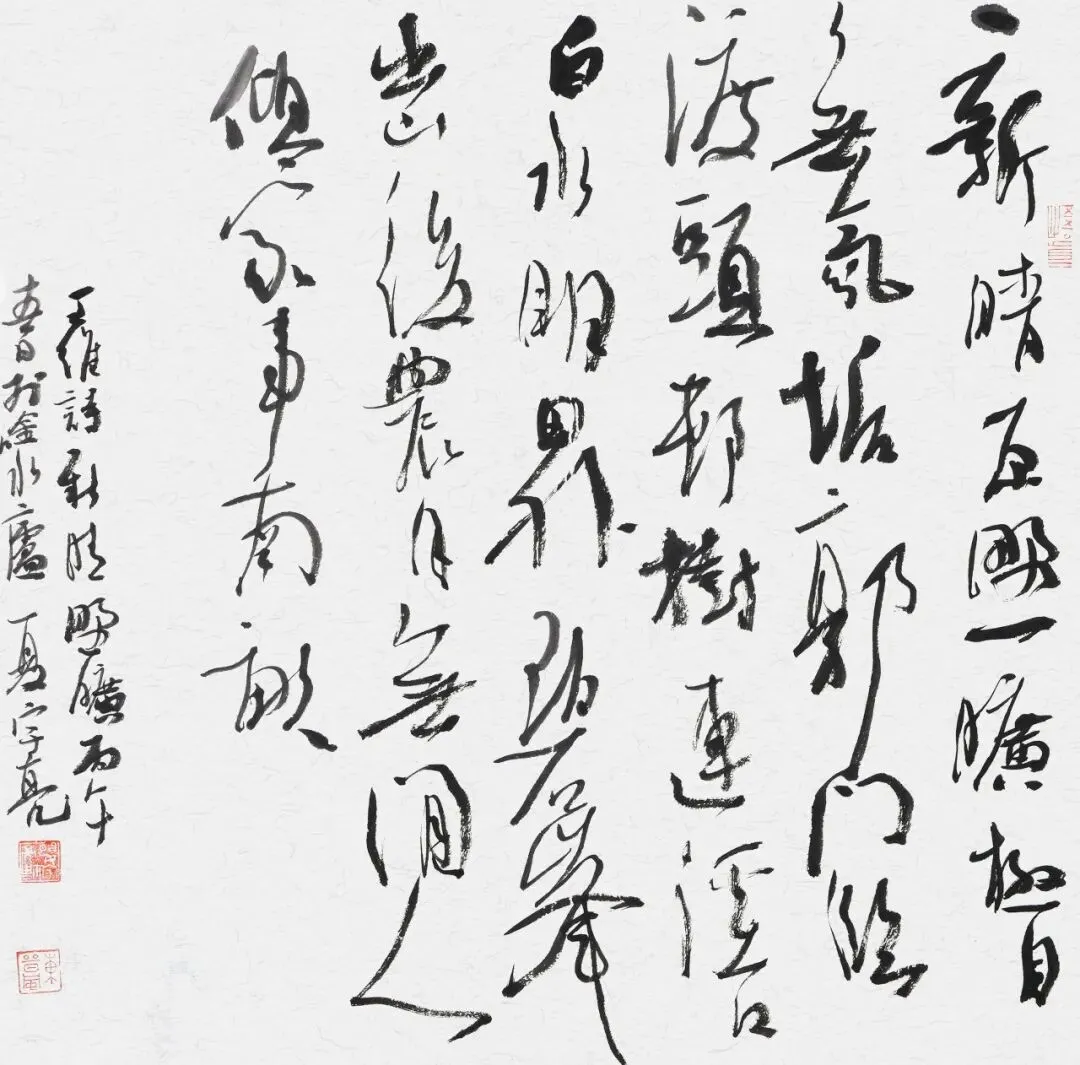 新晴原野曠極目
無氛垢郭門臨
渡頭邨樹連溪口
白水明田外碧峰
出山後農月無閒人
傾家事南畝
王維詩新晴野曠丙午
於水廬夏宇亮